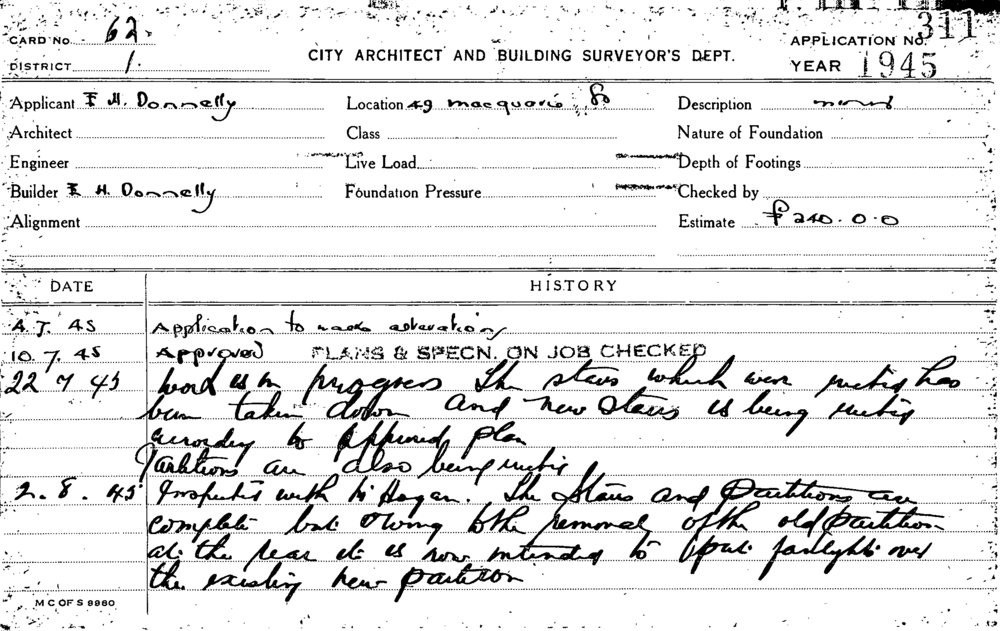 CARD No. 62.
DISTRICT 1.
CITY ARCHITECT AND BUILDING SURVEYOR'S DEPT.
APPLICATION No. 311
YEAR 1945
Applicant E H. Donnelly Location 49 macquarie Description
Architect Class Nature of Foundation
Engineer Live Load Depth of Footings
Builder E H. Donnelly Foundation Pressure Checked by
Alignment Estimate £240.0.0
DATE HISTORY
4.7.45 Application to make alterations
10.7.45 Approved PLANS & SPECN. ON JOB CHECKED
22 7 45 Work is in progress The stairs which were has
been taken down and new stairs is being
according to approved plan
Partitions are also being
2.8.45 Inspected with Mr Hogan. The Stairs and Partitions are
complete but owing to the removal of the old partition
at the rear it is now intended to put fanlights over
the existing new partition
M C OF S 9980